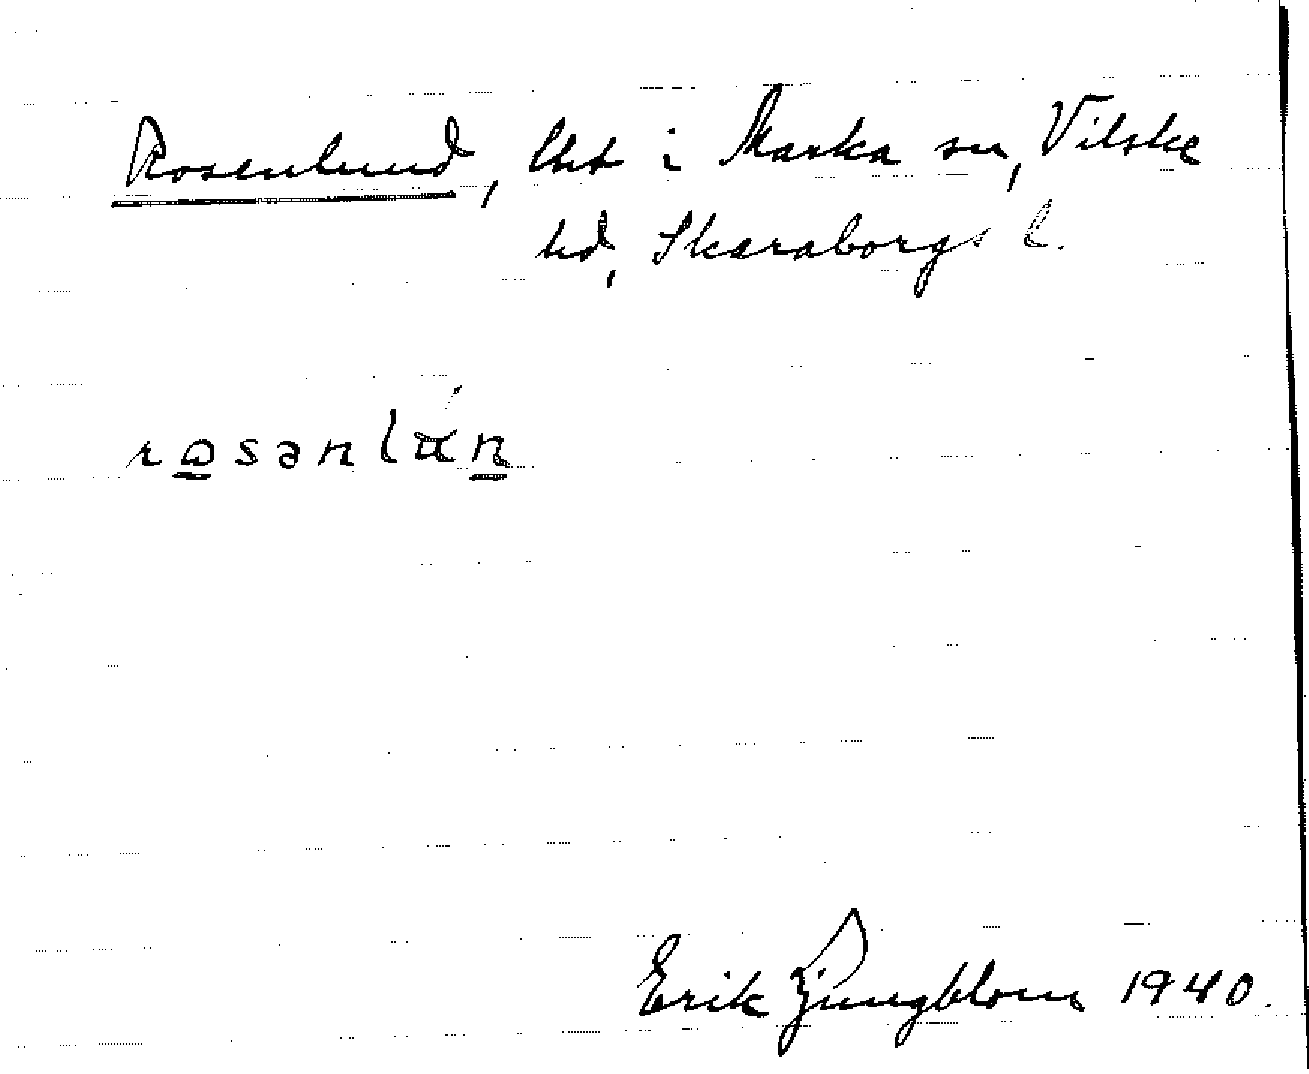 Rosenlund, lht i Marka sn, Vilske
hd, Skaraborgs l.
Erik Ljungblom 1940.